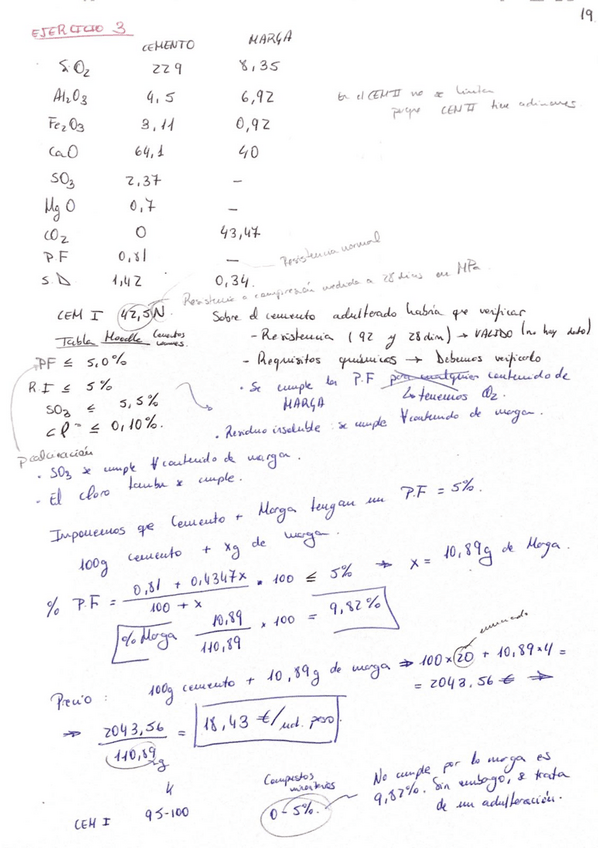 19
EJERCICIO 3
CEMENTO MARGA
SiO2 229 8,35
Al2O3 4,5 6,92
Fe2O3 3,11 0,92
CaO 64,1 40
SO3 2,37 –
MgO 0,7 –
CO2 0 43,47
P.F 0,81 –
S.D 1,42 0,34.
En el CEM II no se limitan
porque CEM II tiene adiciones
Resistencia normal
Resistencia a compresión medida a 28 días en MPa.
CEM I 42,5N.
Tabla Moodle cementos comunes.
PF ≤ 5,0%
R.I ≤ 5%
SO3 ≤ 5,5%
Cl⁻ ≤ 0,10%.
p calcinación
Sobre el cemento adulterado habría que verificar
- Resistencia (92 y 28 dim) → VALIDO (no hay dato)
- Requisitos químicos → Debemos verificarlo
· Se cumple la P.F para cualquier contenido de
MARGA ↳ tenemos O2.
· Residuo insoluble: se cumple ∀contenido de marga.
· SO3 se cumple ∀contenido de marga.
· El cloro también se cumple.
Imponemos que Cemento + Marga tengan un P.F = 5%.
100g cemento + xg de marga.
% P.F = 0,81 + 0,4347x / 100 + x · 100 ≤ 5% → x = 10,89g de Marga.
% Marga 10,89 / 110,89 × 100 = 9,82%
Precio: 100g cemento + 10,89g de marga ⇒ 100×20 + 10,89×4 =
enunciado
= 2043,56 € →
⇒ 2043,56 / 110,89 = 18,43 €/ud. peso
xg
CEM I 95-100
Compuestos minoritarios
0-5%.
No cumple por lo marga es
9,82%. Sin embargo, se trata
de un adulteración.